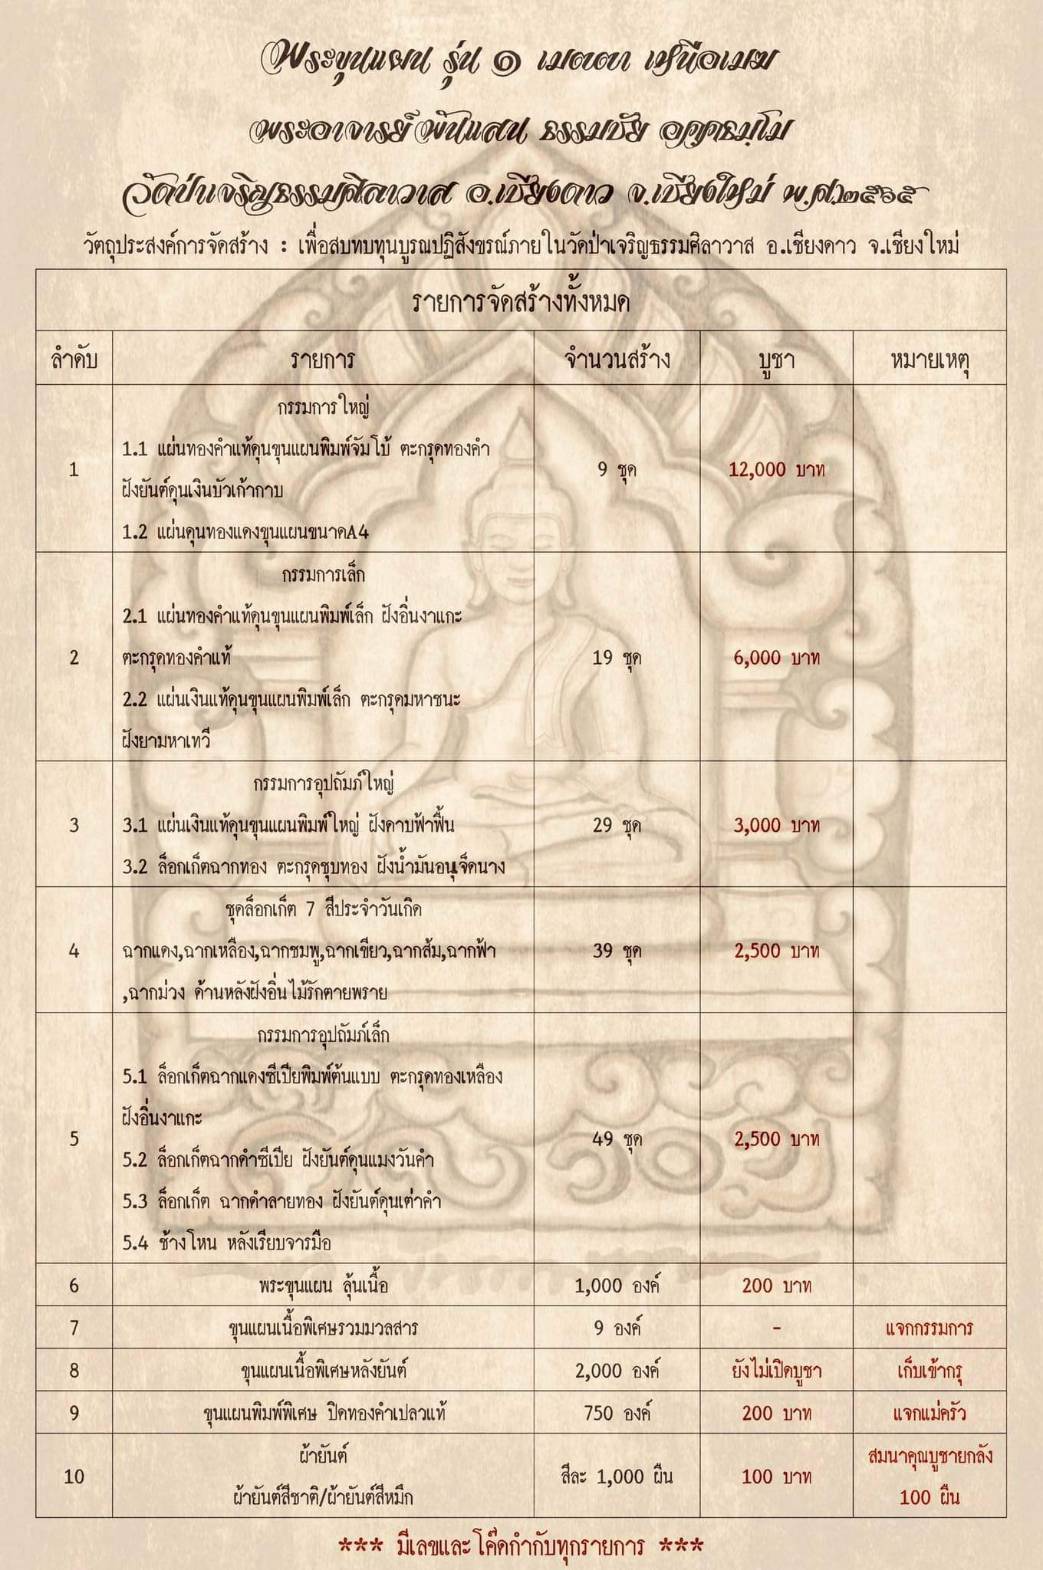 พระขุนแผน รุ่น ๑ เมตตา เหนือเมฆ
พระอาจารย์ พันแสน ธรรมชัย อคฺคธมฺโม
วัดป่าเจริญธรรมศิลาวาส อ.เชียงดาว จ.เชียงใหม่ พ.ศ.๒๕๖๕
วัตถุประสงค์การจัดสร้าง : เพื่อสบทบทุนบูรณปฏิสังขรณ์ภายในวัดป่าเจริญธรรมศิลาวาส อ.เชียงดาว จ.เชียงใหม่
รายการจัดสร้างทั้งหมด
ลำดับ รายการ จำนวนสร้าง บูชา หมายเหตุ
กรรมการใหญ่
1.1 แผ่นทองคำแท้ดุนขุนแผนพิมพ์จัมโบ้ ตะกรุดทองคำ
1 9 ชุด 12,000 บาท
ฝังยันต์ดุนเงินบัวเก้ากาบ
1.2 แผ่นดุนทองแดงขุนแผนขนาดA4
กรรมการเล็ก
2.1 แผ่นทองคำแท้ดุนขุนแผนพิมพ์เล็ก ฝังอิ่นงาแกะ
2 ตะกรุดทองคำแท้ 19 ชุด 6,000 บาท
2.2 แผ่นเงินแท้ดุนขุนแผนพิมพ์เล็ก ตะกรุดมหาชนะ
ฝังยามหาเทวี
กรรมการอุปถัมภ์ใหญ่
3 3.1 แผ่นเงินแท้ดุนขุนแผนพิมพ์ใหญ่ ฝังดาบฟ้าฟื้น 29 ชุด 3,000 บาท
3.2 ล็อกเก็ตฉากทอง ตะกรุดชุบทอง ฝังน้ำมันอนุเจ็ดนาง
ชุดล็อกเก็ต 7 สีประจำวันเกิด
4 ฉากแดง,ฉากเหลือง,ฉากชมพู,ฉากเขียว,ฉากส้ม,ฉากฟ้า 39 ชุด 2,500 บาท
,ฉากม่วง ด้านหลังฝังอิ่นไม้รักตายพราย
กรรมการอุปถัมภ์เล็ก
5.1 ล็อกเก็ตฉากแดงซีเปียพิมพ์ต้นแบบ ตะกรุดทองเหลือง
ฝังอิ่นงาแกะ
5 49 ชุด 2,500 บาท
5.2 ล็อกเก็ตฉากดำซีเปีย ฝังยันต์ดุนแมงวันคำ
5.3 ล็อกเก็ต ฉากดำลายทอง ฝังยันต์ดุนเต่าคำ
5.4 ช้างโหน หลังเรียบจารมือ
6 พระขุนแผน ลุ้นเนื้อ 1,000 องค์ 200 บาท
7 ขุนแผนเนื้อพิเศษรวมมวลสาร 9 องค์ - แจกกรรมการ
8 ขุนแผนเนื้อพิเศษหลังยันต์ 2,000 องค์ ยังไม่เปิดบูชา เก็บเข้ากรุ
9 ขุนแผนพิมพ์พิเศษ ปิดทองคำเปลวแท้ 750 องค์ 200 บาท แจกแม่ครัว
ผ้ายันต์ สมนาคุณบูชายกลัง
10 สีละ 1,000 ผืน 100 บาท
ผ้ายันต์สีชาติ/ผ้ายันต์สีหมึก 100 ผืน
*** มีเลขและโค๊ดกำกับทุกรายการ ***